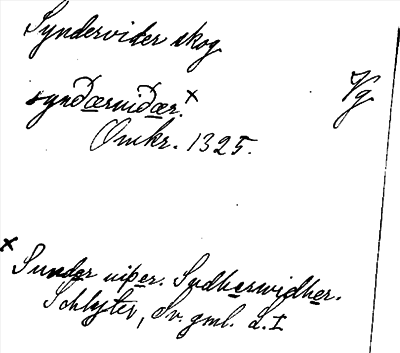 Syndervider skog
synðærwiðær.× Vg
Omkr. 1325.
× Sunder uiþer. Sudherwidher.
Schlyter, Sv. gml. L. I